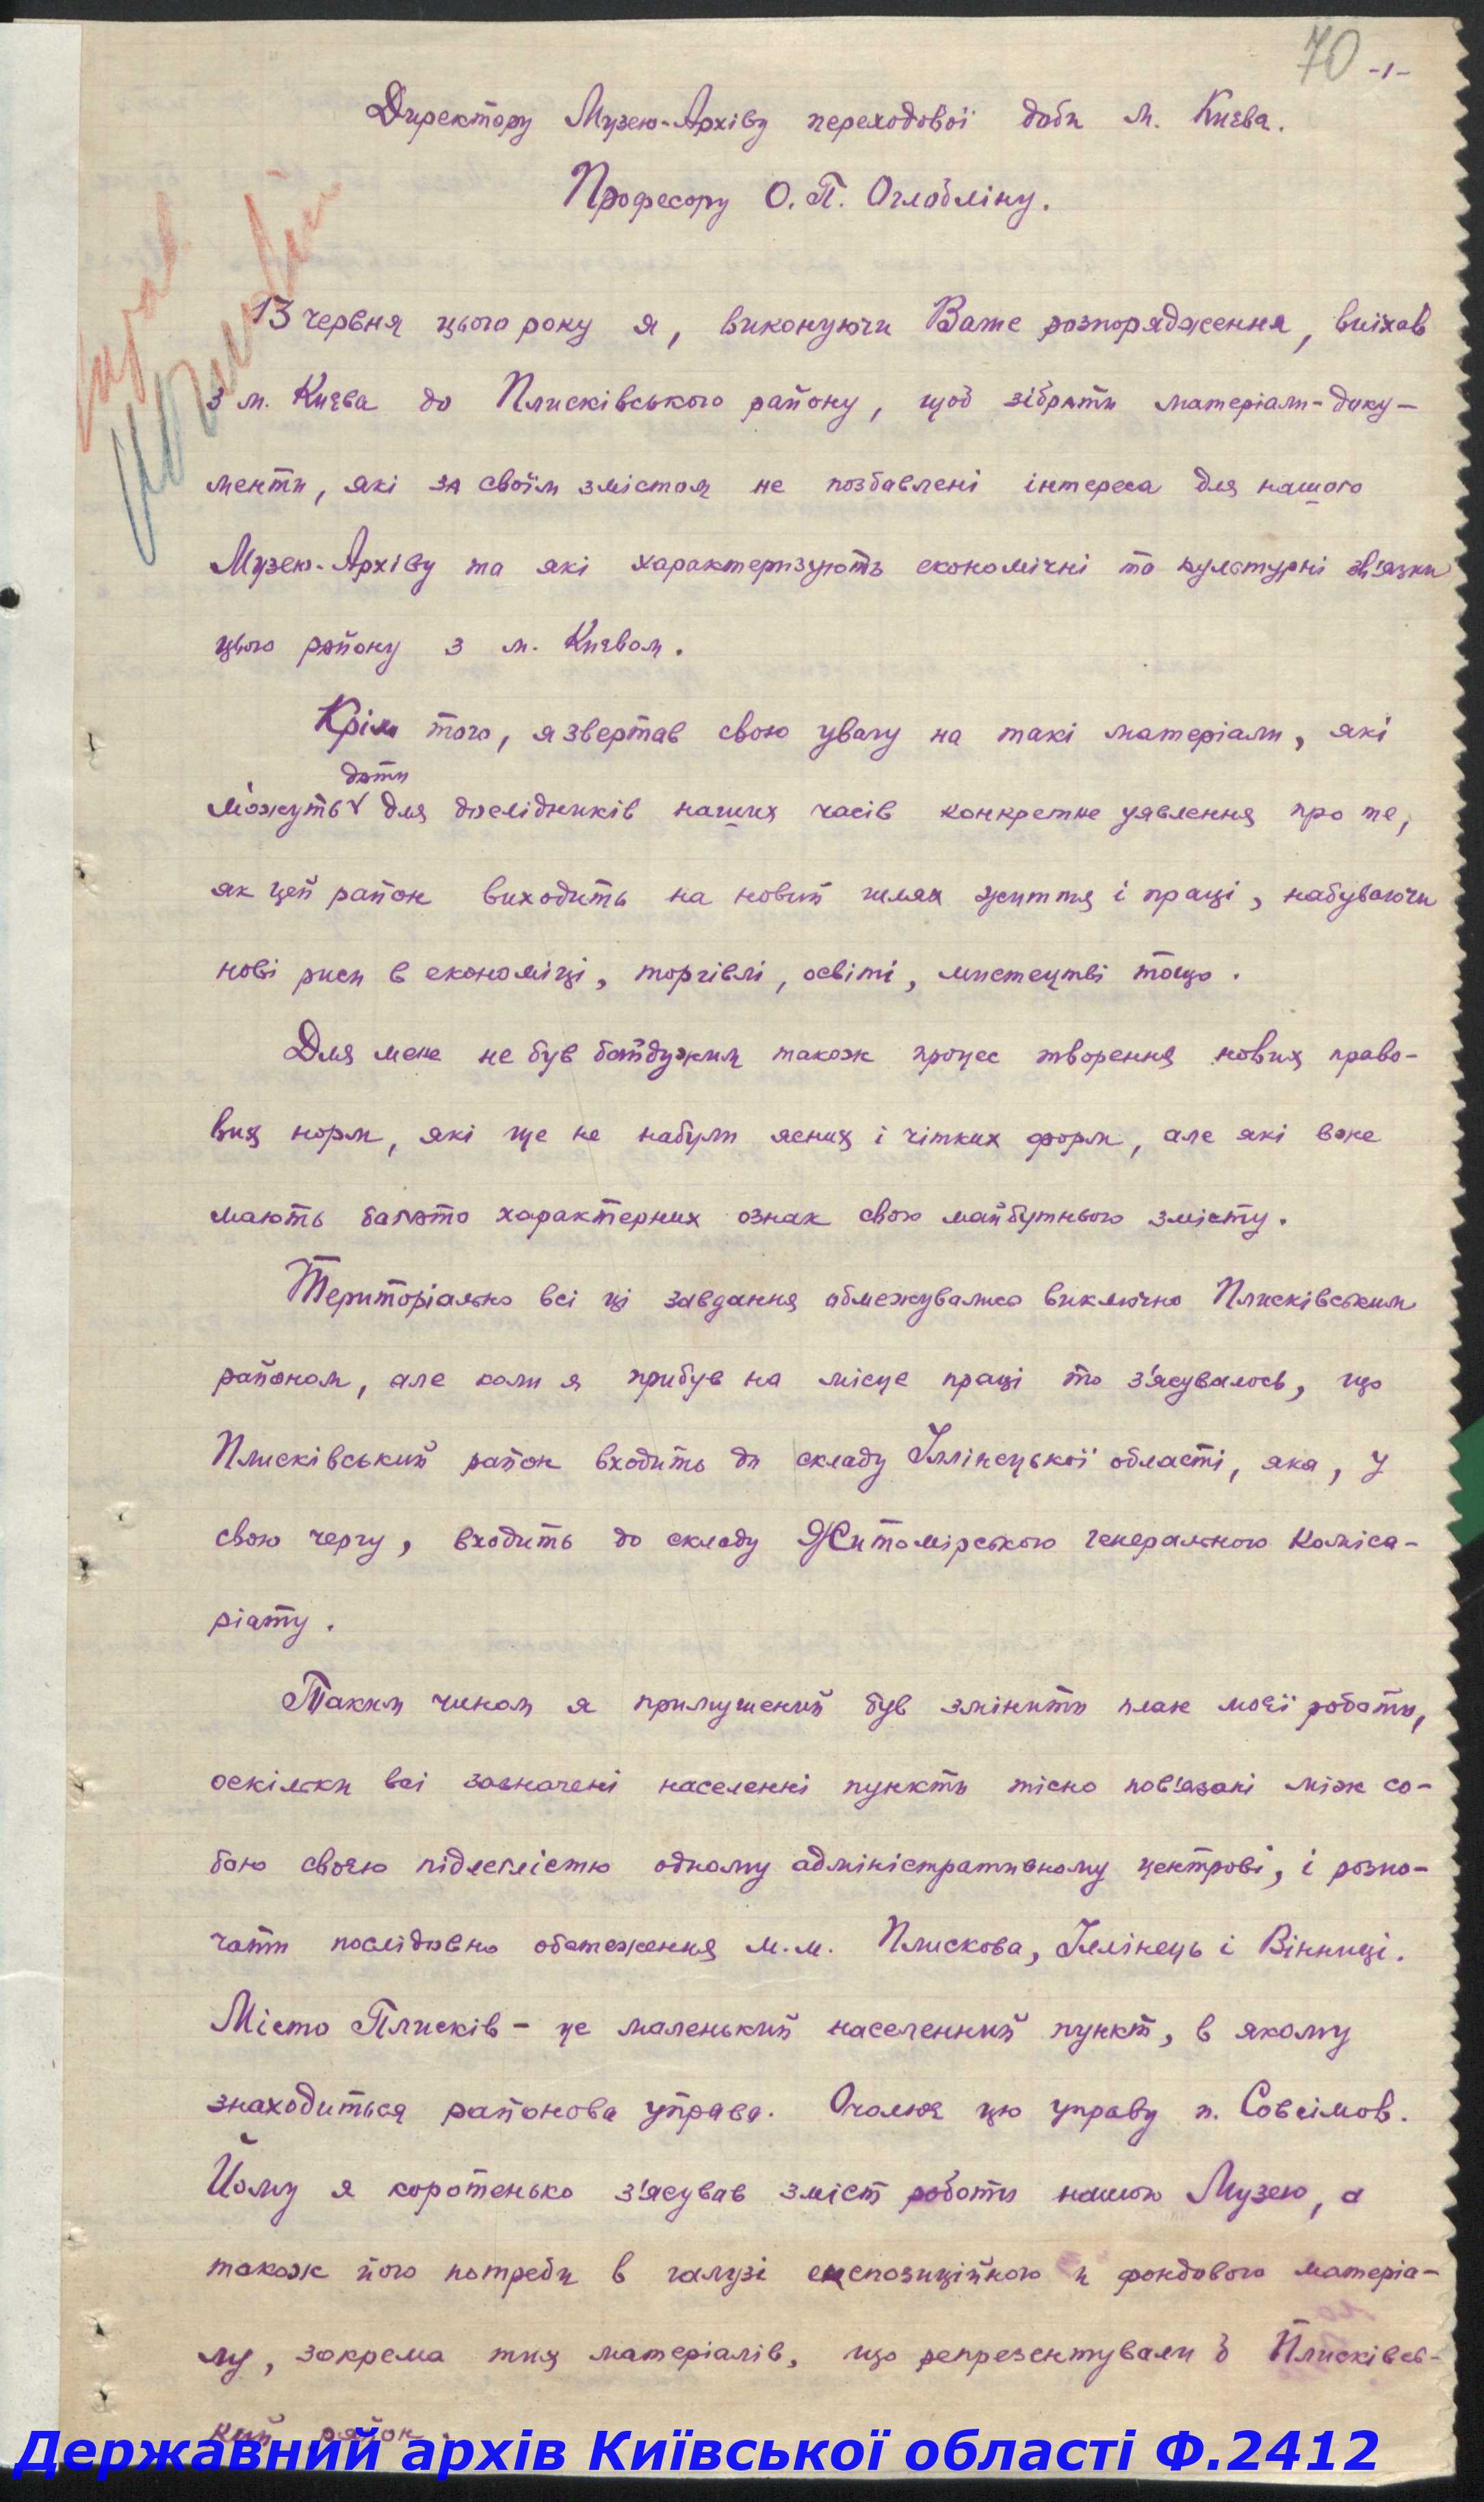 70 -1-
Директору Музею-Архіву переходової доби м. Києва.
Професору О. П. Оглобліну.
13 червня цього року я, виконуючи Ваше розпорядження, виїхав
з м. Києва до Плисківського району, щоб зібрати матеріали-доку-
менти, які за своїм змістом не позбавлені інтереса для нашого
Музею-Архіву та які характеризують економічні та культурні зв'язки
цього району з м. Києвом.
Крім того, я звертав свою увагу на такі матеріали, які
дати
можуть для дослідників наших часів конкретне уявлення про те,
як цей район виходить на новий шлях життя і праці, набуваючи
нові риси в економіці, торгівлі, освіті, мистецтві тощо.
Для мене не був байдужим також процес творення нових право-
вих норм, які ще не набули ясних і чітких форм, але які вже
мають багато характерних ознак свого майбутнього змісту.
Територіально всі ці завдання обмежувались виключно Плисківським
районом, але коли я прибув на місце праці то з'ясувалось, що
Плисківський район входить до складу Іллінецької області, яка, у
свою чергу, входить до складу Житомірського генерального Коміса-
ріату.
Таким чином я примушений був змінити план моєї роботи,
оскільки всі зазначені населенні пункти тісно пов'язані між со-
бою своєю підлеглістю одному адміністративному центрові, і розпо-
чати послідовно обстеження м.м. Плискова, Іллінець і Вінниці.
Місто Плисків - це маленький населенний пункт, в якому
знаходиться районова управа. Очолює цю управу п. Совсімов.
Йому я коротенько з'ясував зміст роботи нашого Музею, а
також його потреби в галузі експозиційного й фондового матеріа-
лу, зокрема тих матеріалів, що репрезентували б Плисківсь-
кий район.
Державний архів Київської області Ф.2412